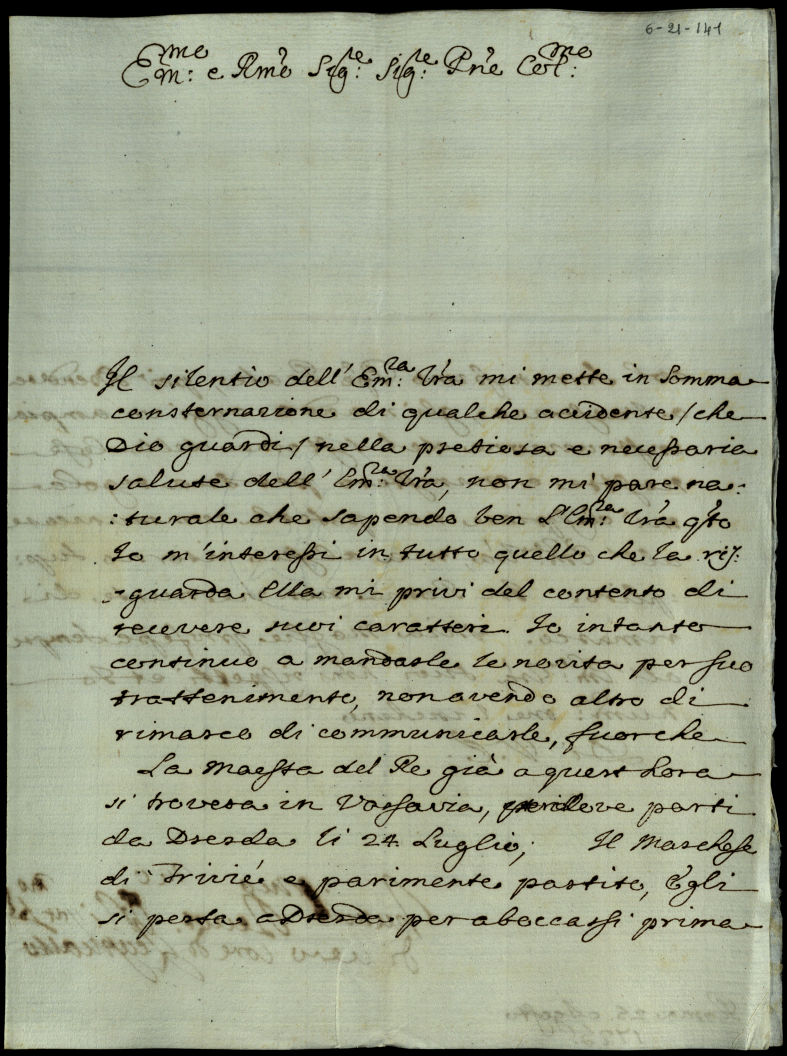 6-21-141
Em:^me e Rmo Sig:^re Sig:^re Pne Col:^mo
Il silentio dell' Em:^za Vra mi mette in Somma
consternazione di qualche accidente /che
Dio guardi/ nella pretiosa e necessaria
salute dell' Em:^za Vra, non mi pare na:
:turale che sapendo ben L'Em:^za Vra qto
Io m'interessi in tutto quello che la ris:
:guarda Ella mi privi del contento di
recevere suoi caratteri. Io intanto
continuo a mandarle le novita per suo
trattenimento, non avendo altro di
rimarco di communicarle, fuorche
La Maesta del Re già a quest hora
si trovera in Varsavia, parti
da Dresda li 24 Luglio; Il Marchese
di Trivié e parimente partito, Egli
si porta a Dresda per aboccarsi prima